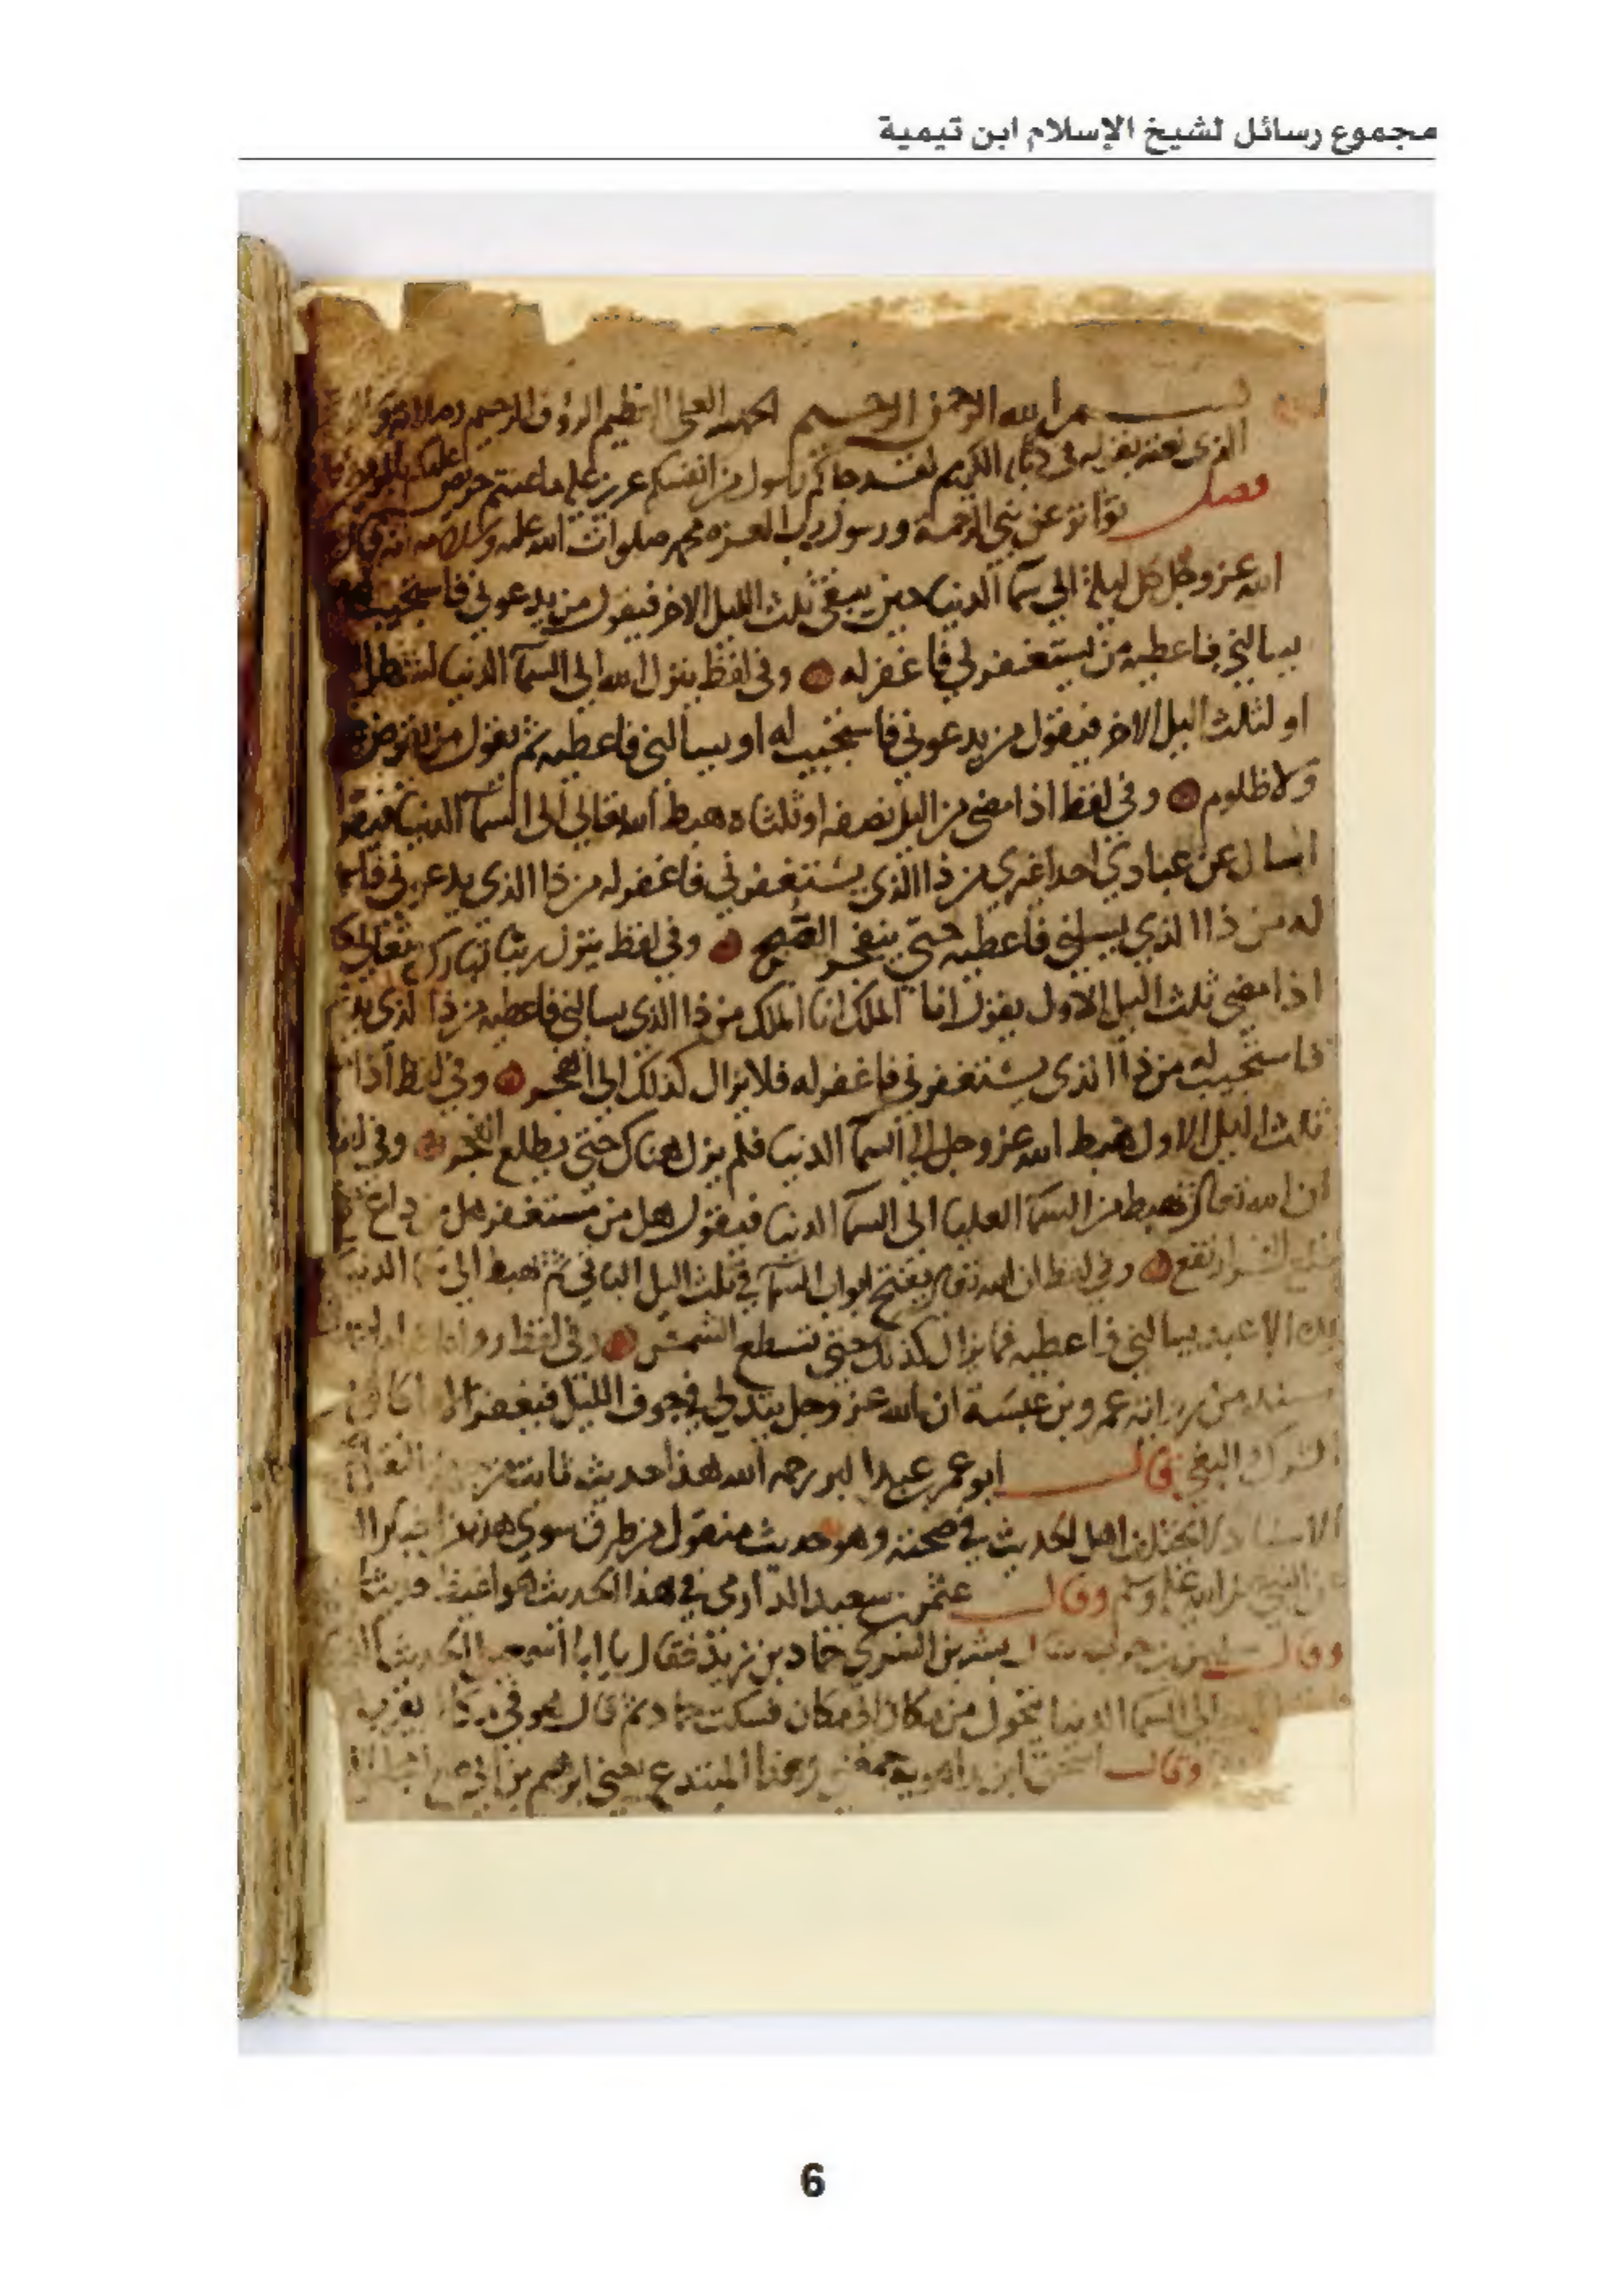 مجموع رسائل لشيخ الإسلام ابن تيمية
بسم الله الرحمن الرحيم الحمد لله العلي العظيم الرؤوف الرحيم
الذي نعته بقوله في كتابه الكريم لقد جاكم رسول من انفسكم عزيز عليه ما عنتم حريص عليكم
فصل تواتر عن نبي الرحمة ورسول رب العزه محمد صلوات الله عليه وسلامه انه قال
الله عز وجل كل ليلة الى سما الدنيا حين يبقى ثلث الليل الاخر فيقول من يدعوني فاستجيب له
يسالني فاعطيه من يستغفرني فاغفر له وفي لفظ ينزل الله الى السما الدنيا لشطر
او لثلث اليل الاخر فيقول من يدعوني فاستجيب له او يسالني فاعطيه ثم يقول من يقرض
ولا ظلوم وفي لفظ اذا مضى من اليل نصفه او ثلثاه هبط الله تعالى الى السما الدنيا فيقول
اسال عن عبادي احدا غيري من ذا الذي يستغفرني فاغفر له من ذا الذي يدعوني
له من ذا الذي يسلني فاعطيه حتى ينفجر الصبح وفي لفظ ينزل ربنا تبارك وتعالى
اذا مضى ثلث اليل الاول يقول انا الملك انا الملك من ذا الذي يسالني فاعطيه من ذا الذي
فاستجيب له من ذا الذي يستغفرني فاغفر له فلا يزال كذلك الى الفجر وفي لفظ اذا
ثلث اليل الاول هبط الله عز وجل الى السما الدنيا فلم يزل هناك حتى يطلع الفجر وفي
ان الله تعالى يهبط من السما العليا الى السما الدنيا فيقول هل من مستغفر هل من داع
ارتفع وفي لفظ ان الله تعالى يفتح ابواب السما في ثلث اليل الباقي ثم يهبط الى الدنيا
الا عبد يسالني فاعطيه فما يزال كذلك حتى تسطع الشمس وفي لفظ رواه
عمرو بن عبسة ان الله عز وجل يتدلى في جوف الليل فيغفر الا ما كان
الشرك البغي قال ابو عمر عبد البر رحمه الله هذا حديث ثابت من
الاسناد لا يختلف اهل الحديث في صحته وهو حديث منقول من طرق سوى هذه من اخبار
عن النبي صلى الله عليه وسلم وقال عثمن بن سعيد الدارمي في هذا الحديث هو اغيظ حديث
وقال بن حرب سال بشر بن السري حماد بن زيد فقال يا ابا اسمعيل الحديث
الى السما الدنيا يتحول من مكان الى مكان فسكت حماد ثم قال هو في مكانه يقرب
وقال اسحق ابن راهويه جمعني وهذا المبتدع يعني ابرهيم بن ابي صالح
6